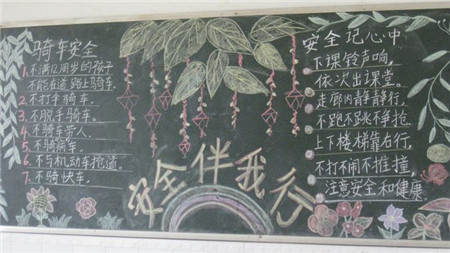 骑车安全
1.不满12周岁的孩子
不能在道路上骑车.
2.不打手骑车.
3.不脱手骑车.
4.不骑车带人.
5.不骑病车.
6.不与机动车抢道.
7.不骑快车.
安全伴我行
安全记心中
下课铃声响,
依次出课堂。
走廊内静静行,
不跑不跳不争抢
上下楼梯靠右行,
不打不闹不推撞,
注意安全和健康